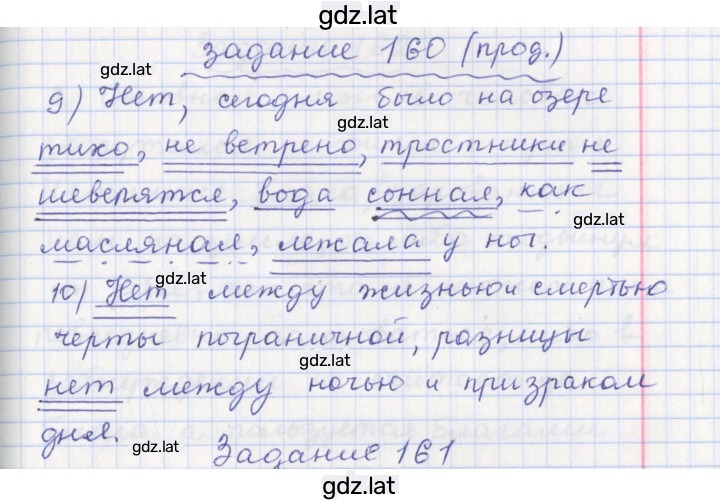 gdz.lat
задание 160 (прод.)
gdz.lat
9) Нет, сегодня было на озере
gdz.lat
тихо, не ветрено, тростники не
шевелятся, вода сонная, как
gdz.lat
масляная, лежала у ног.
gdz.lat
10) Нет между жизнью и смертью
черты пограничной, разницы
gdz.lat
нет между ночью и призраком
дня.
gdz.lat
Задание 161
gdz.lat